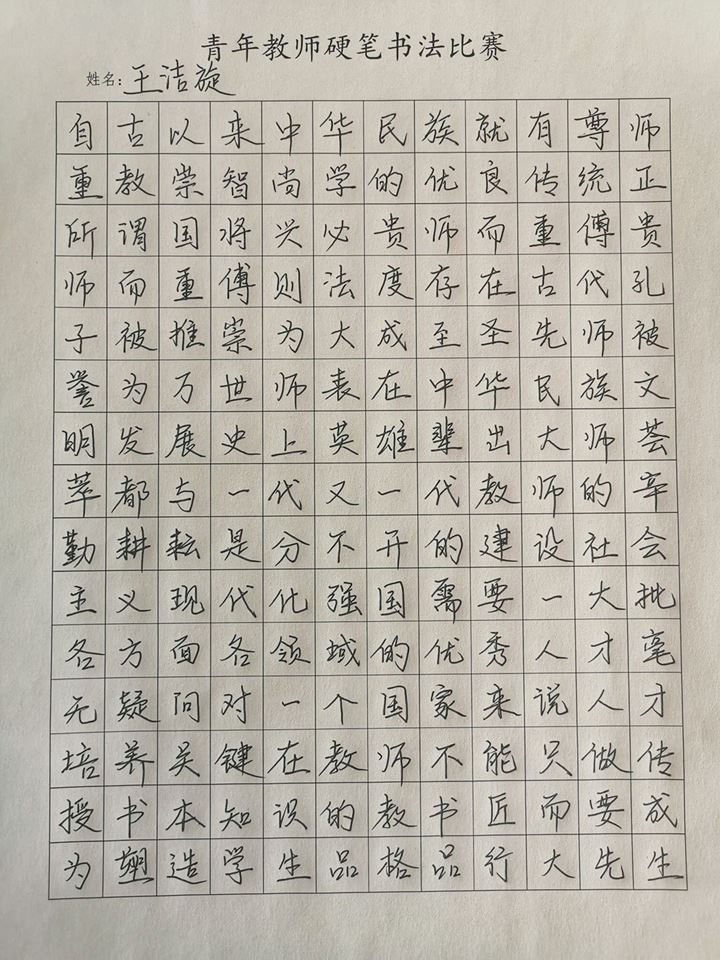 青年教师硬笔书法比赛
姓名：王洁旋
自古以来中华民族就有尊师
重教崇智尚学的优良传统正
所谓国将兴必贵师而重傅贵
师而重傅则法度存在古代孔
子被推崇为大成至圣先师被
誉为万世师表在中华民族文
明发展史上英雄辈出大师荟
萃都与一代又一代教师的辛
勤耕耘是分不开的建设社会
主义现代化强国需要一大批
各方面各领域的优秀人才毫
无疑问对一个国家来说人才
培养关键在教师不能只做传
授书本知识的教书匠而要成
为塑造学生品格品行大先生